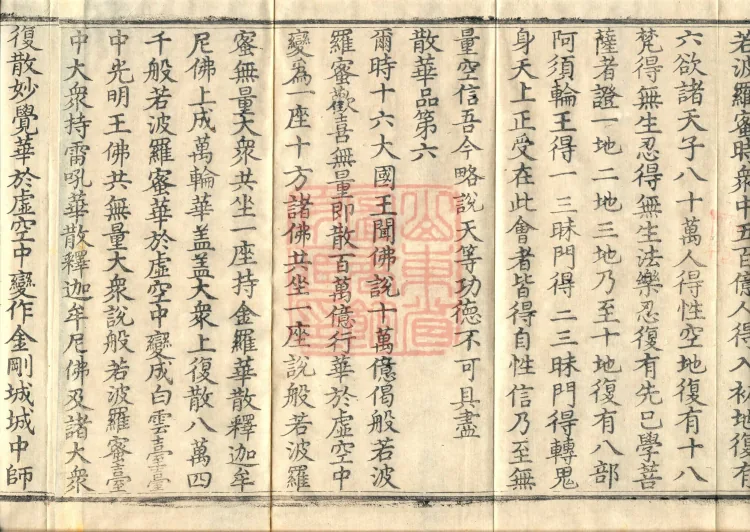 若波羅蜜時衆中五百億人得入初地復有
六欲諸天子八十萬人得性空地復有十八
梵得無生忍得無生法樂忍復有先已學菩
薩者證一地二地三地乃至十地復有八部
阿須輪王得一三昧門得二三昧門得轉鬼
身天上正受在此會者皆得自性信乃至無
量空信吾今略說天等功德不可具盡
散華品第六
爾時十六大國王聞佛說十萬億偈般若波
羅蜜歡喜無量即散百萬億行華於虛空中
變爲一座十方諸佛共坐一座說般若波羅
蜜無量大衆共坐一座持金羅華散釋迦牟
尼佛上成萬輪華盖盖大衆上復散八萬四
千般若波羅蜜華於虛空中變成白雲臺臺
中光明王佛共無量大衆說般若波羅蜜臺
中大衆持雷吼華散釋迦牟尼佛及諸大衆
復散妙覺華於虛空中變作金剛城城中師
山東省